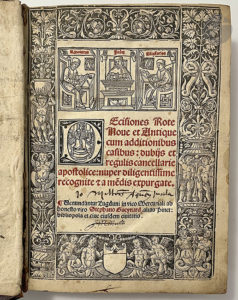 Decisiones Rote
Noue et Antique
cum additionibus
casibus: dubijs et
regulis cancellarie
apostolice: nuper diligentissime
recognite ⁊ a mẽdis expurgate.
Uenundantur Lugduni in vico Mercuriali ab
honesto viro Stephano Gueynard, alias Pinet:
bibliopola et ciue eiusdem ciuitatis.